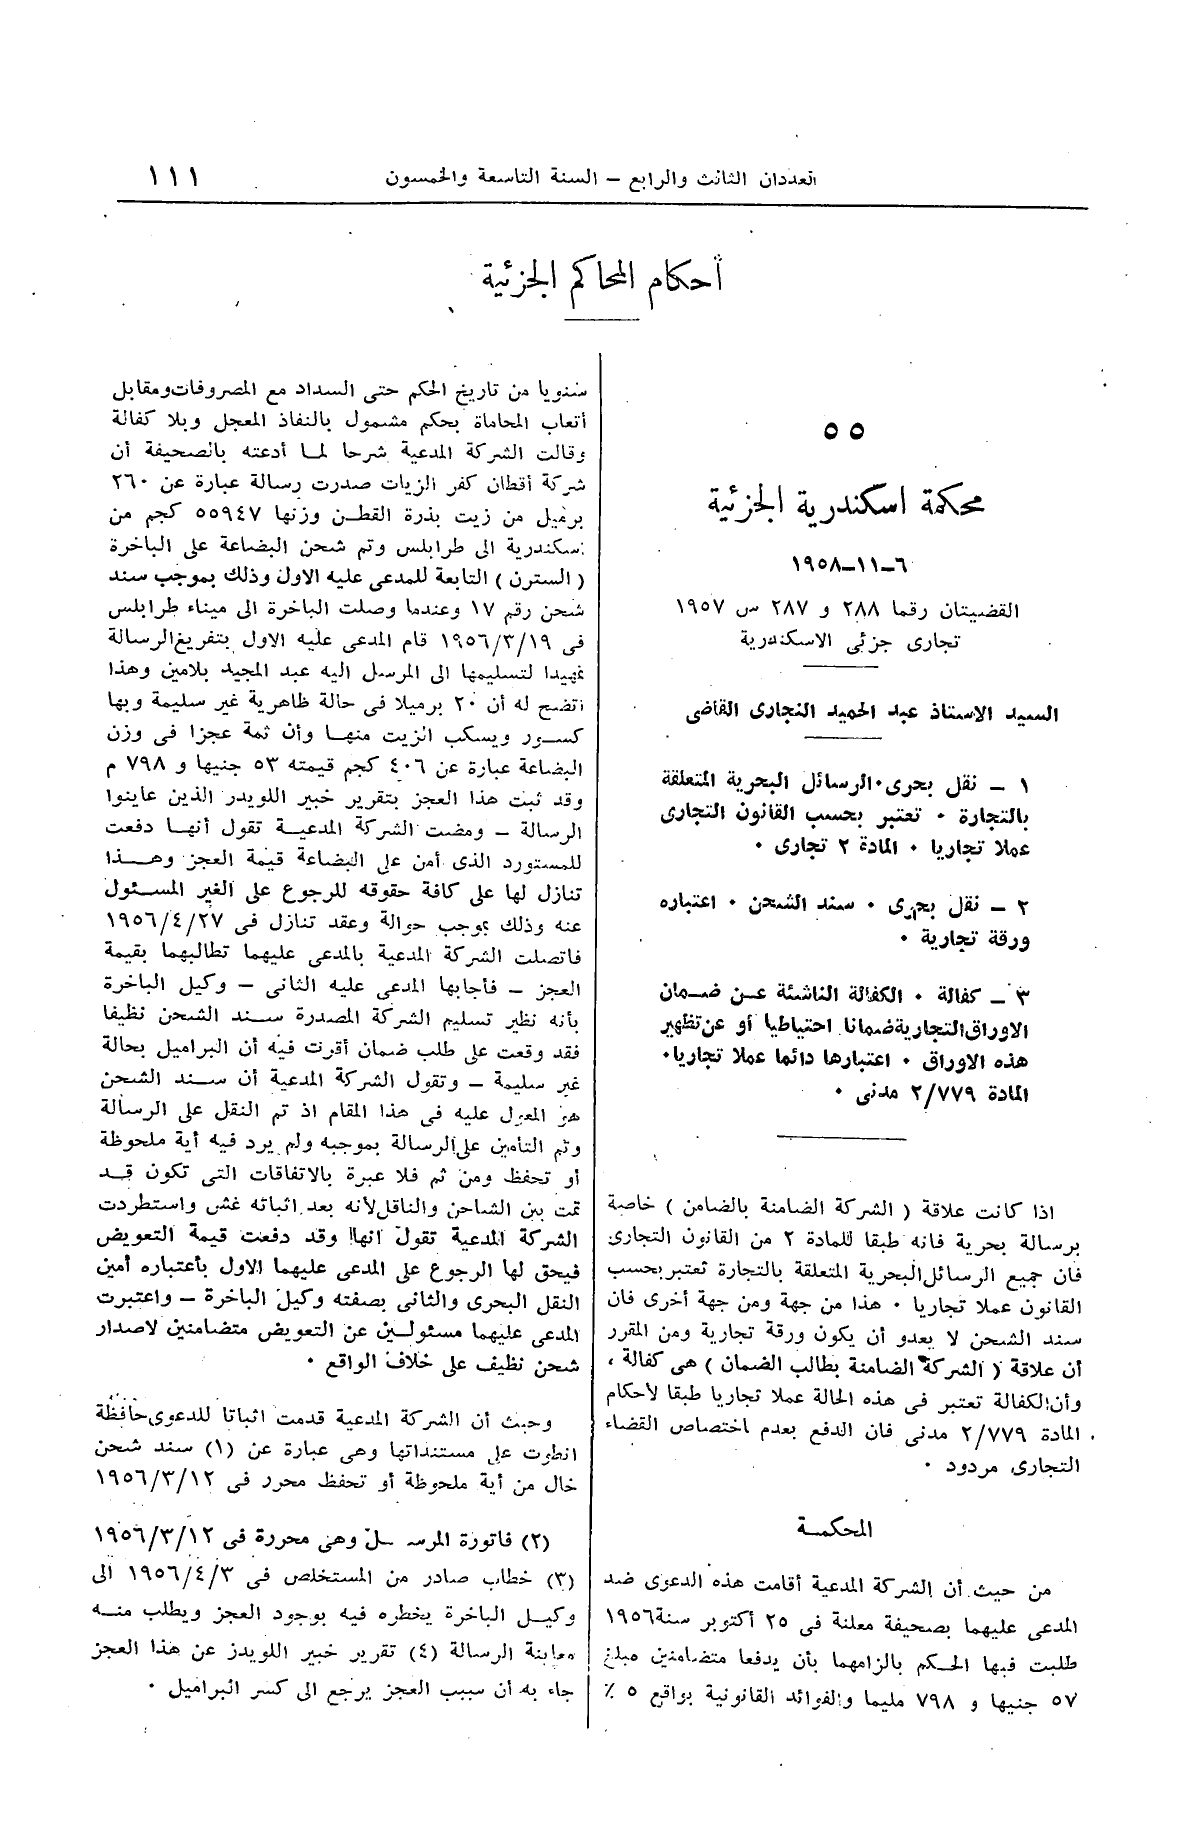 العددان الثالث والرابع – السنة التاسعة والخمسون
١١١
أحكام المحاكم الجزئية
٥٥
محكمة اسكندرية الجزئية
٦–١١–١٩٥٨
القضيتان رقما ٢٨٨ و ٢٨٧ س ١٩٥٧
تجارى جزئى الاسكندرية
السيد الاستاذ عبد الحميد النجارى القاضى
١ – نقل بحرى٠الرسائل البحرية المتعلقة
بالتجارة ٠ تعتبر بحسب القانون التجارى
عملا تجاريا ٠ المادة ٢ تجارى ٠
٢ – نقل بحرى ٠ سند الشحن ٠ اعتباره
ورقة تجارية ٠
٣ – كفالة ٠ الكفالة الناشئة عن ضمان
الاوراق التجارية ضمانا احتياطيا أو عن تظهير
هذه الاوراق ٠ اعتبارها دائما عملا تجاريا٠
المادة ٢/٧٧٩ مدنى ٠
اذا كانت علاقة ( الشركة الضامنة بالضامن ) خاصة
برسالة بحرية فانه طبقا للمادة ٢ من القانون التجارى
فان جميع الرسائل البحرية المتعلقة بالتجارة تعتبر بحسب
القانون عملا تجاريا ٠ هذا من جهة ومن جهة أخرى فان
سند الشحن لا يعدو أن يكون ورقة تجارية ومن المقرر
أن علاقة ( الشركة الضامنة بطالب الضمان ) هى كفالة ،
وأن الكفالة تعتبر فى هذه الحالة عملا تجاريا طبقا لأحكام
المادة ٢/٧٧٩ مدنى فان الدفع بعدم اختصاص القضاء
التجارى مردود ٠
المحكمة
من حيث أن الشركة المدعية أقامت هذه الدعوى ضد
المدعى عليهما بصحيفة معلنة فى ٢٥ أكتوبر سنة ١٩٥٦
طلبت فيها الحكم بالزامهما بأن يدفعا متضامنين مبلغ
٥٧ جنيها و ٧٩٨ مليما والفوائد القانونية بواقع ٥ ٪
سنويا من تاريخ الحكم حتى السداد مع المصروفات ومقابل
أتعاب المحاماة بحكم مشمول بالنفاذ المعجل وبلا كفالة
وقالت الشركة المدعية شرحا لما أدعته بالصحيفة أن
شركة أقطان كفر الزيات صدرت رسالة عبارة عن ٢٦٠
برميل من زيت بذرة القطن وزنها ٥٥٩٤٧ كجم من
اسكندرية الى طرابلس وتم شحن البضاعة على الباخرة
( السترن ) التابعة للمدعى عليه الاول وذلك بموجب سند
شحن رقم ١٧ وعندما وصلت الباخرة الى ميناء طرابلس
فى ١٩٥٦/٣/١٩ قام المدعى عليه الاول بتفريغ الرسالة
تمهيدا لتسليمها الى المرسل اليه عبد المجيد بلامين وهذا
اتضح له أن ٢٠ برميلا فى حالة ظاهرية غير سليمة وبها
كسور ويسكب الزيت منها وأن ثمة عجزا فى وزن
البضاعة عبارة عن ٤٠٦ كجم قيمته ٥٣ جنيها و ٧٩٨ م
وقد ثبت هذا العجز بتقرير خبير اللويدر الذين عاينوا
الرسالة – ومضت الشركة المدعية تقول أنها دفعت
للمستورد الذى أمن على البضاعة قيمة العجز وهذا
تنازل لها على كافة حقوقه للرجوع على الغير المسئول
عنه وذلك بموجب حوالة وعقد تنازل فى ١٩٥٦/٤/٢٧
فاتصلت الشركة المدعية بالمدعى عليهما تطالبهما بقيمة
العجز – فأجابها المدعى عليه الثانى – وكيل الباخرة
بأنه نظير تسليم الشركة المصدرة سند الشحن نظيفا
فقد وقعت على طلب ضمان أقرت فيه أن البراميل بحالة
غير سليمة – وتقول الشركة المدعية أن سند الشحن
هو المعول عليه فى هذا المقام اذ تم النقل على الرسالة
وتم التأمين على الرسالة بموجبه ولم يرد فيه أية ملحوظة
أو تحفظ ومن ثم فلا عبرة بالاتفاقات التى تكون قد
تمت بين الشاحن والناقل لأنه بعد اثباته غش واستطردت
الشركة المدعية تقول انها وقد دفعت قيمة التعويض
فيحق لها الرجوع على المدعى عليهما الاول بأعتباره أمين
النقل البحرى والثانى بصفته وكيل الباخرة – واعتبرت
المدعى عليهما مسئولين عن التعويض متضامنين لاصدار
شحن نظيف على خلاف الواقع ٠
وحيث أن الشركة المدعية قدمت اثباتا للدعوى حافظة
انطوت على مستنداتها وهى عبارة عن (١) سند شحن
خال من أية ملحوظة أو تحفظ محرر فى ١٩٥٦/٣/١٢
(٢) فاتورة المرسل وهى محررة فى ١٩٥٦/٣/١٢
(٣) خطاب صادر من المستخلص فى ١٩٥٦/٤/٣ الى
وكيل الباخرة يخطره فيه بوجود العجز ويطلب منه
معاينة الرسالة (٤) تقرير خبير اللويدز عن هذا العجز
جاء به أن سبب العجز يرجع الى كسر البراميل ٠